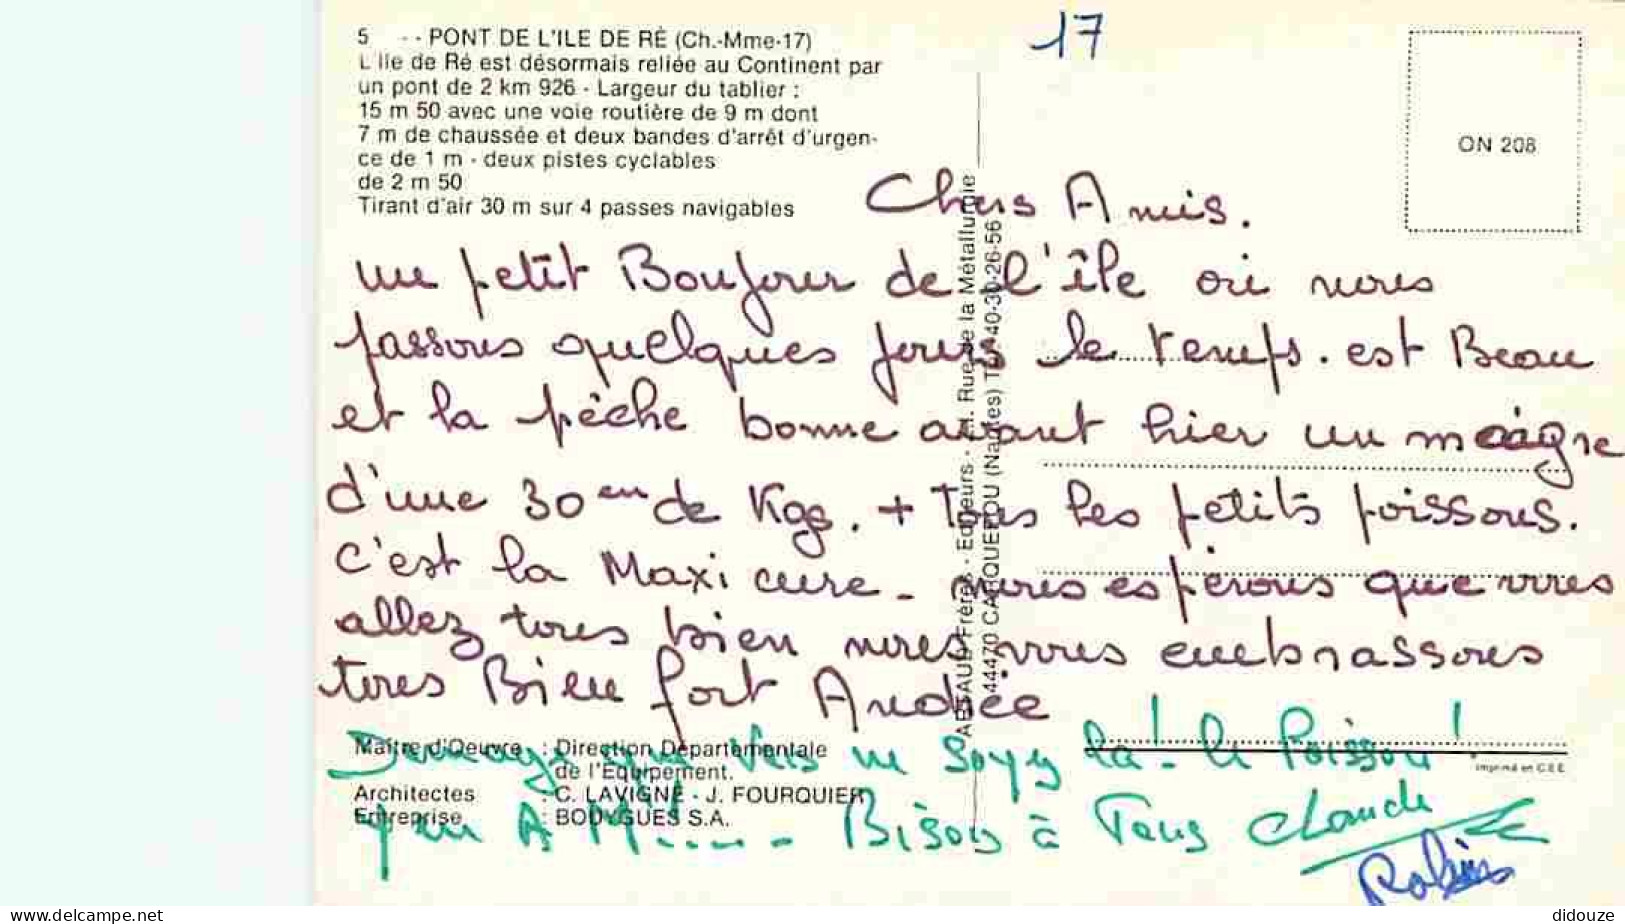 17
5 - - PONT DE L'ILE DE RÉ (Ch.-Mme-17)
L'Ile de Ré est désormais reliée au Continent par
un pont de 2 km 926 - Largeur du tablier :
15 m 50 avec une voie routière de 9 m dont
7 m de chaussée et deux bandes d'arrêt d'urgen-
ce de 1 m - deux pistes cyclables
de 2 m 50
Tirant d'air 30 m sur 4 passes navigables
ON 208
Chers Amis.
un petit Boujour de l'île où nous
passons quelques jours le temps. est Beau
et la pêche bonne avant hier un maigre
d'une 30en de Kgs. + Tous les petits poissons.
C'est la Maxi cure - nous espérons que vous
allez tous bien nous vous embrassons
tous Bien fort Andrée
que vous ne soyez la! le Poisson!
Bisous à Tous Claude
Robin
Maître d'Oeuvre : Direction Départementale
de l'Equipement.
Architectes : C. LAVIGNE - J. FOURQUIER
Entreprise : BOUYGUES S.A.
Frères - Editeurs - Rue de la Métallurgie
44470 CARQUEFOU (Nantes) Tél. 40-30-26-56
Imprimé en C.E.E.
https://www.delcampe.net
didouze